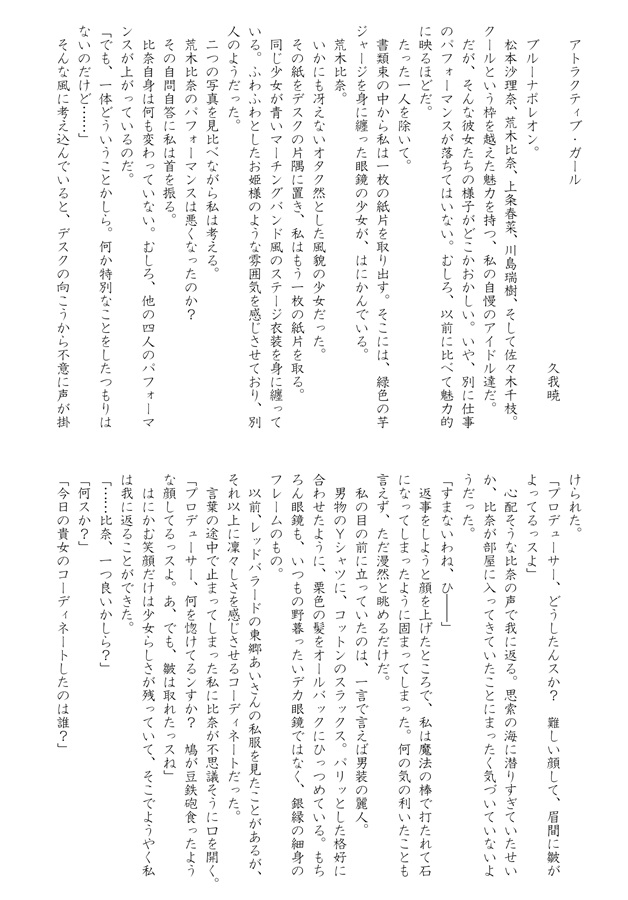 アトラクティブ・ガール
久我暁
ブルーナポレオン。
松本沙理奈、荒木比奈、上条春菜、川島瑞樹、そして佐々木千枝。
クールという枠を越えた魅力を持つ、私の自慢のアイドル達だ。
だが、そんな彼女たちの様子がどこかおかしい。いや、別に仕事
のパフォーマンスが落ちてはいない。むしろ、以前に比べて魅力的
に映るほどだ。
たった一人を除いて。
書類束の中から私は一枚の紙片を取り出す。そこには、緑色の芋
ジャージを身に纏った眼鏡の少女が、はにかんでいる。
荒木比奈。
いかにも冴えないオタク然とした風貌の少女だった。
その紙をデスクの片隅に置き、私はもう一枚の紙片を取る。
同じ少女が青いマーチングバンド風のステージ衣装を身に纏って
いる。ふわふわとしたお姫様のような雰囲気を感じさせており、別
人のようだった。
二つの写真を見比べながら私は考える。
荒木比奈のパフォーマンスは悪くなったのか？
その自問自答に私は首を振る。
比奈自身は何も変わっていない。むしろ、他の四人のパフォーマ
ンスが上がっているのだ。
「でも、一体どういうことかしら。何か特別なことをしたつもりは
ないのだけど……」
そんな風に考え込んでいると、デスクの向こうから不意に声が掛
けられた。
「プロデューサー、どうしたんスか？　難しい顔して、眉間に皺が
よってるっスよ」
心配そうな比奈の声で我に返る。思索の海に潜りすぎていたせい
か、比奈が部屋に入ってきていたことにまったく気づいていないよ
うだった。
「すまないわね、ひ――」
返事をしようと顔を上げたところで、私は魔法の棒で打たれて石
になってしまったように固まってしまった。何の気の利いたことも
言えず、ただ漫然と眺めるだけだ。
私の目の前に立っていたのは、一言で言えば男装の麗人。
男物のＹシャツに、コットンのスラックス。パリッとした格好に
合わせたように、栗色の髪をオールバックにひっつめている。もち
ろん眼鏡も、いつもの野暮ったいデカ眼鏡ではなく、銀縁の細身の
フレームのもの。
以前、レッドバラードの東郷あいさんの私服を見たことがあるが、
それ以上に凛々しさを感じさせるコーディネートだった。
言葉の途中で止まってしまった私に比奈が不思議そうに口を開く。
「プロデューサー、何を惚けてるンすか？　鳩が豆鉄砲食ったよう
な顔してるっスよ。あ、でも、皺は取れたっスね」
はにかむ笑顔だけは少女らしさが残っていて、そこでようやく私
は我に返ることができた。
「……比奈、一つ良いかしら？」
「何スか？」
「今日の貴女のコーディネートしたのは誰？」